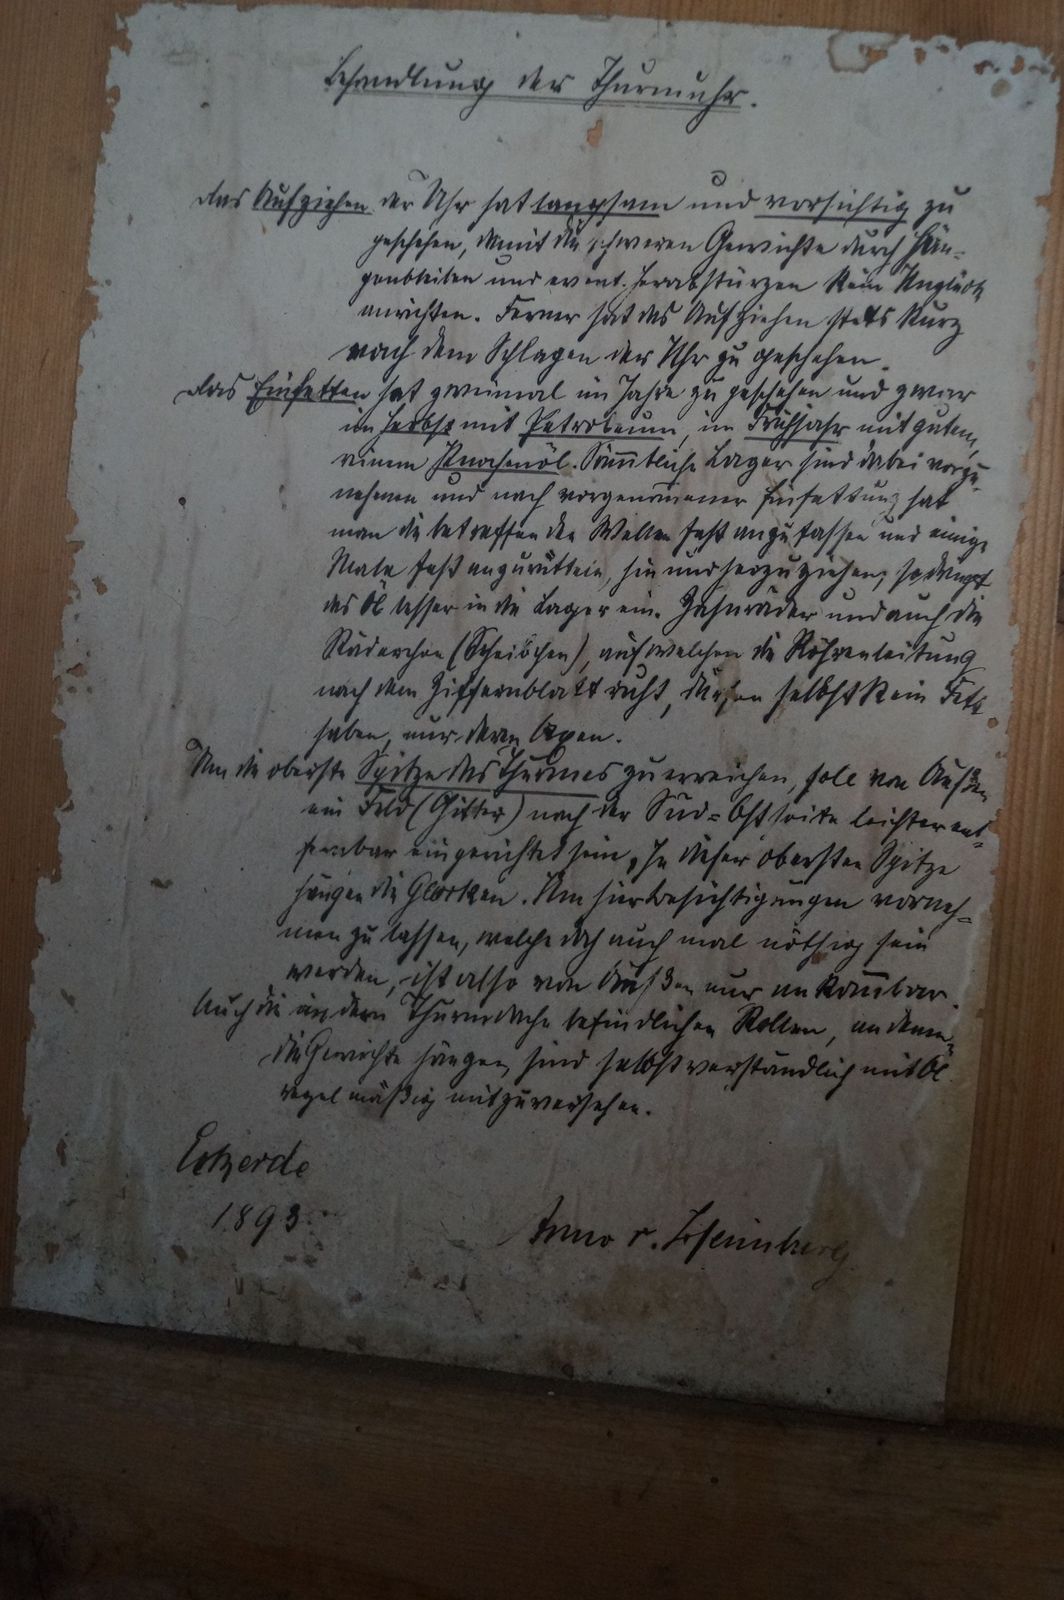 Behandlung der Thurmuhr.
Das Aufziehen der Uhr hat langsam und vorsichtig zu
geschehen, damit die schweren Gewichte durch Hän-
genbleiben und event. Herabstürzen kein Unglück
anrichten. Ferner hat das Aufziehen stets kurz
nach dem Schlagen der Uhr zu geschehen.
Das Einfetten hat zweimal im Jahre zu geschehen und zwar
im Herbst mit Petroleum, im Frühjahr mit gutem,
reinem Knochenöl. Sämmtliche Lager sind dabei vorzu-
nehmen und nach vorgenommener Einfettung hat
man die betreffenden Wellen fest anzufassen und einige
Male fest anzurütteln, hin und herzuziehen, so dringt
das Öl besser in die Lager ein. Zahnräder und auch die
Räderchen (Scheibchen), auf welchen die Röhrenleitung
nach dem Ziffernblatt ruht, dürfen selbst kein Fett
haben, nur deren Axen.
Um die oberste Spitze des Thurmes zu erreichen, soll von Außen
ein Feld (Gitter) nach der Süd-Ostseite leichter ent-
fernbar eingerichtet sein. In dieser obersten Spitze
hängen die Glocken. Um hier Besichtigungen vorneh-
men zu lassen, welche doch auch mal nöthig sein
werden, ist also von Außen nur ankommbar.
Auch die in dem Thurmdache befindlichen Rollen, an denen
die Gewichte hängen, sind selbstverständlich mit Öl
regelmäßig mitzuversehen.
Eckerde
1893.